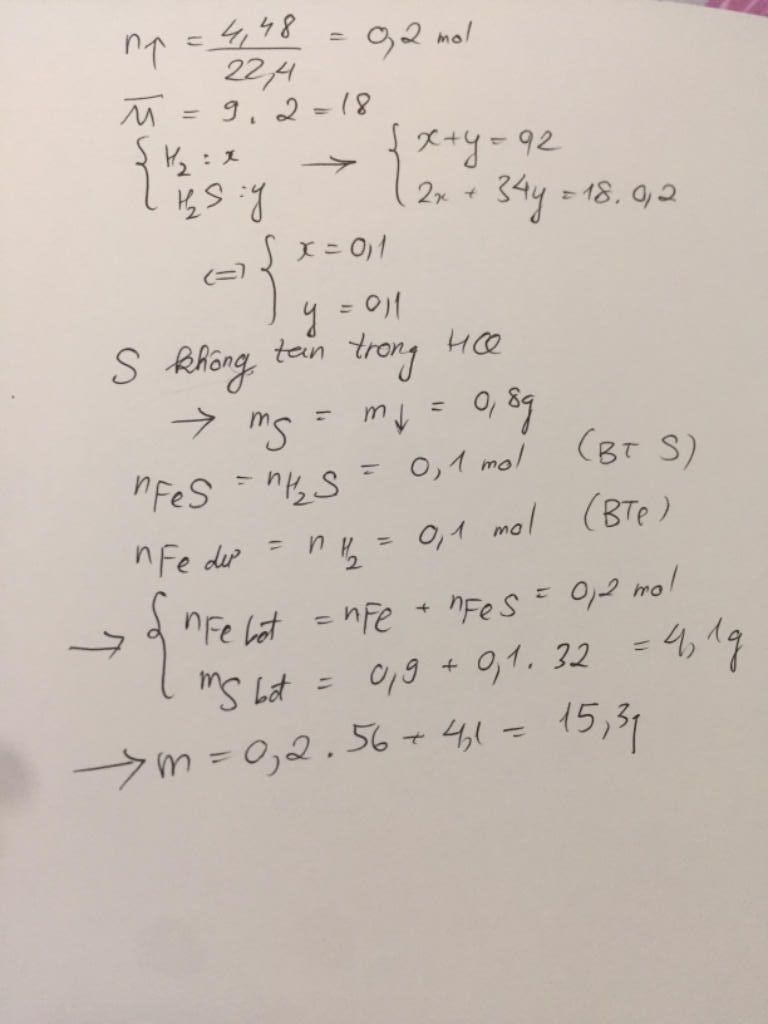 n↑ = 4,48 / 22,4 = 0,2 mol
M̅ = 9 . 2 = 18
{ H₂ : x → { x + y = 0,2
H₂S : y 2x + 34y = 18 . 0,2
<=> { x = 0,1
y = 0,1
S không tan trong HCl
→ mS = m↓ = 0,8g
nFeS = nH₂S = 0,1 mol (BT S)
nFe dư = nH₂ = 0,1 mol (BTe)
→ { nFe bột = nFe + nFeS = 0,2 mol
mS bột = 0,9 + 0,1 . 32 = 4,1g
→ m = 0,2 . 56 + 4,1 = 15,3g